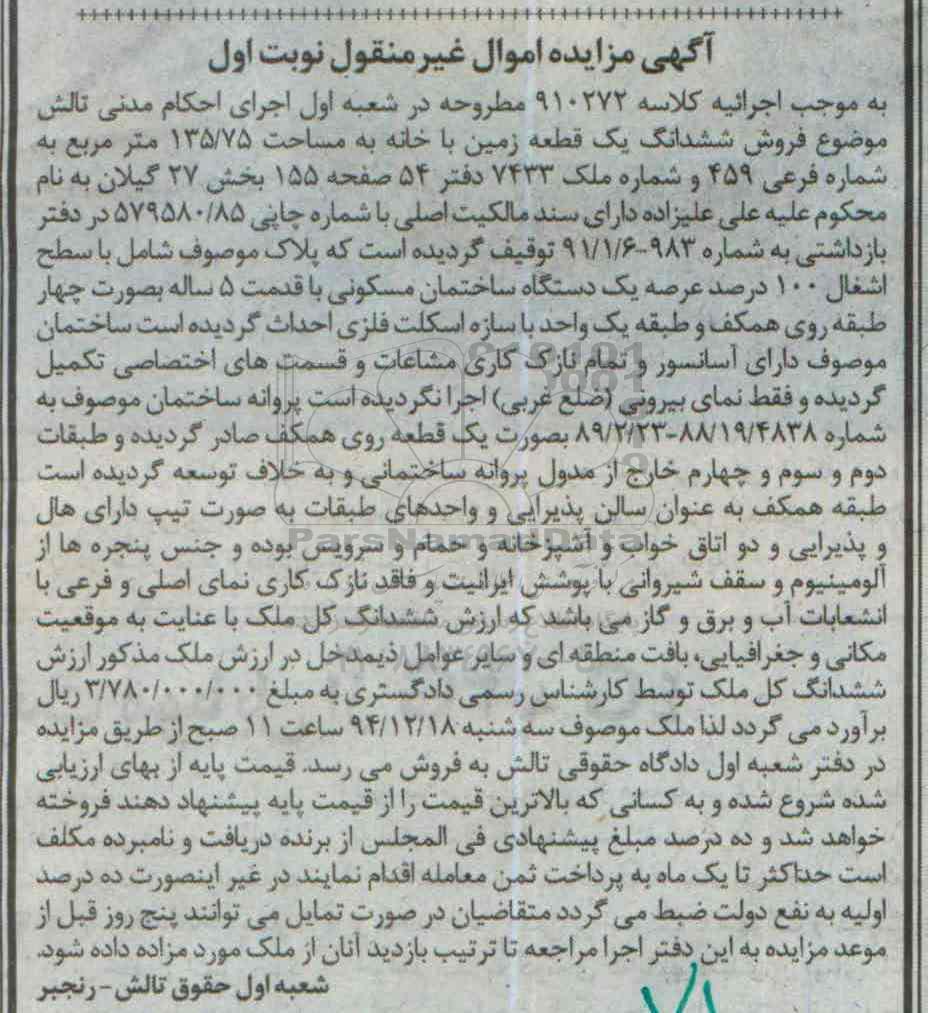 آگهی مزایده اموال غیرمنقول نوبت اول
به موجب اجرائیه کلاسه ۹۱۰۲۷۲ مطروحه در شعبه اول اجرای احکام مدنی تالش
موضوع فروش ششدانگ یک قطعه زمین با خانه به مساحت ۱۳۵/۷۵ متر مربع به
شماره فرعی ۴۵۹ و شماره ملک ۷۴۳۳ دفتر ۵۴ صفحه ۱۵۵ بخش ۲۷ گیلان به نام
محکوم علیه علی علیزاده دارای سند مالکیت اصلی با شماره چاپی ۵۷۹۵۸۰/۸۵ در دفتر
بازداشتی به شماره ۹۸۳-۹۱/۱/۶ توقیف گردیده است که پلاک موصوف شامل با سطح
اشغال ۱۰۰ درصد عرصه یک دستگاه ساختمان مسکونی با قدمت ۵ ساله بصورت چهار
طبقه روی همکف و طبقه یک واحد با سازه اسکلت فلزی احداث گردیده است ساختمان
موصوف دارای آسانسور و تمام نازک کاری مشاعات و قسمت های اختصاصی تکمیل
گردیده و فقط نمای بیرونی (ضلع غربی) اجرا نگردیده است پروانه ساختمان موصوف به
شماره ۸۸/۱۹/۴۸۳۸-۸۹/۲/۲۳ بصورت یک قطعه روی همکف صادر گردیده و طبقات
دوم و سوم و چهارم خارج از مدول پروانه ساختمانی و به خلاف توسعه گردیده است
طبقه همکف به عنوان سالن پذیرایی و واحدهای طبقات به صورت تیپ دارای هال
و پذیرایی و دو اتاق خواب و آشپزخانه و حمام و سرویس بوده و جنس پنجره ها از
آلومینیوم و سقف شیروانی با پوشش ایرانیت و فاقد نازک کاری نمای اصلی و فرعی با
انشعابات آب و برق و گاز می باشد که ارزش ششدانگ کل ملک با عنایت به موقعیت
مکانی و جغرافیایی، بافت منطقه ای و سایر عوامل ذیمدخل در ارزش ملک مذکور ارزش
ششدانگ کل ملک توسط کارشناس رسمی دادگستری به مبلغ ۳/۷۸۰/۰۰۰/۰۰۰ ریال
برآورد می گردد لذا ملک موصوف سه شنبه ۹۴/۱۲/۱۸ ساعت ۱۱ صبح از طریق مزایده
در دفتر شعبه اول دادگاه حقوقی تالش به فروش می رسد. قیمت پایه از بهای ارزیابی
شده شروع شده و به کسانی که بالاترین قیمت را از قیمت پایه پیشنهاد دهند فروخته
خواهد شد و ده درصد مبلغ پیشنهادی فی المجلس از برنده دریافت و نامبرده مکلف
است حداکثر تا یک ماه به پرداخت ثمن معامله اقدام نمایند در غیر اینصورت ده درصد
اولیه به نفع دولت ضبط می گردد متقاضیان در صورت تمایل می توانند پنج روز قبل از
موعد مزایده به این دفتر اجرا مراجعه تا ترتیب بازدید آنان از ملک مورد مزاده داده شود.
شعبه اول حقوق تالش - رنجبر
ParsNamadData